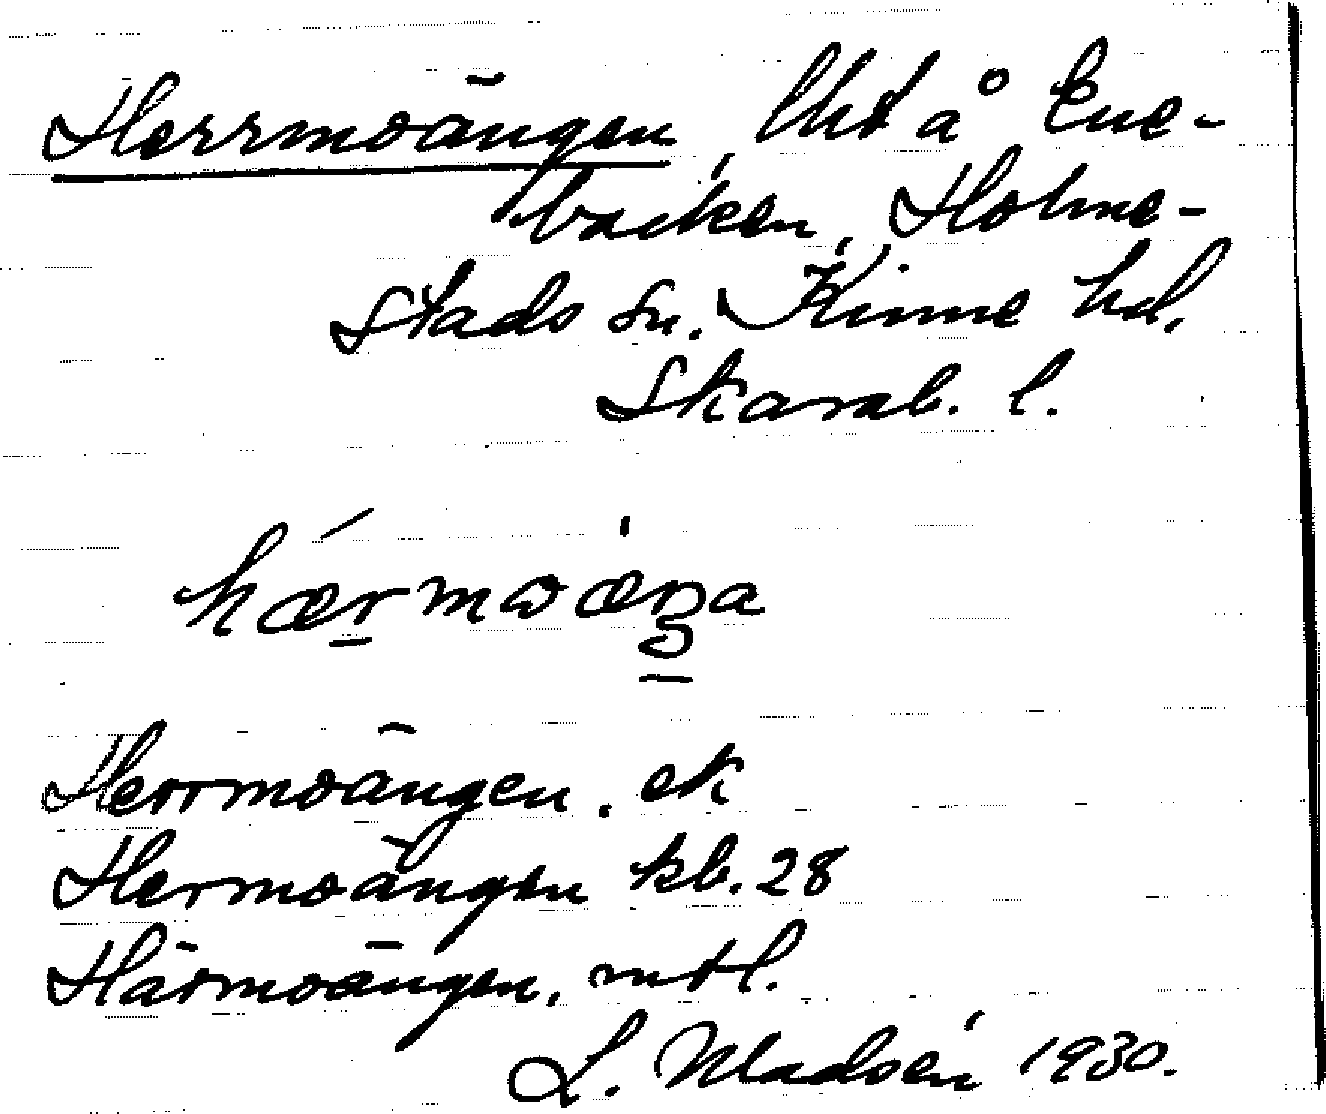 Herrmoängen, Uht å Ene-
backen, Holme-
stads sn. Kinne hd.
Skarab. l.
hærmωæŋa
Herrmoängen. ek
Hermoängen kb. 28
Härmoängen, mtl.
L. Madsén 1930.